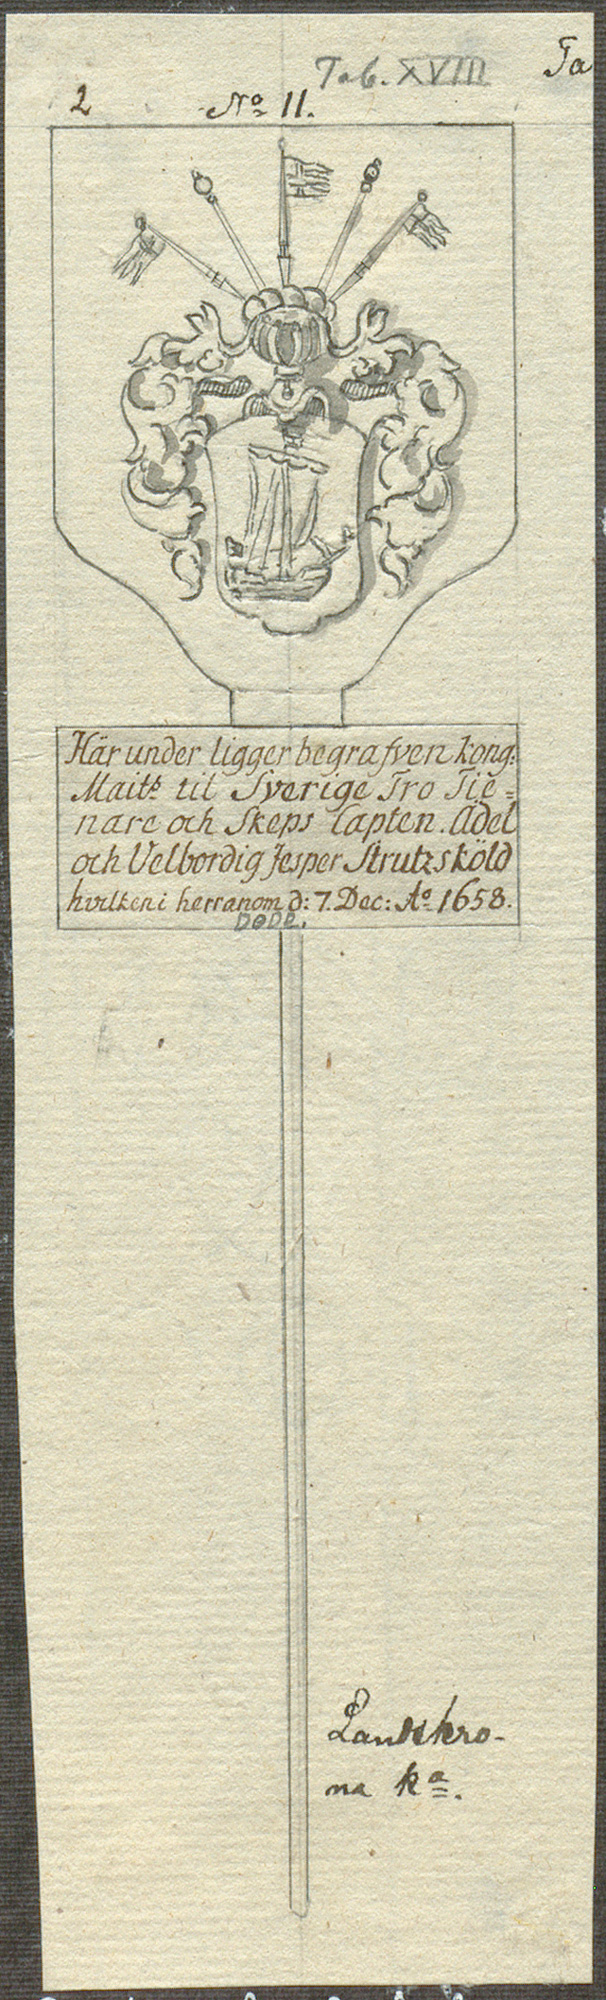 Tab. XVIII
Ta
2
No 11.
Här under ligger begrafven kong:
Maitz til Sverige Tro Tie=
nare och Skeps Capten. Adel
och Velbordig Jesper Strutzsköld
hvilken i herranom d: 7. Dec: Ao 1658.
DØDE.
Landskro-
na ka.